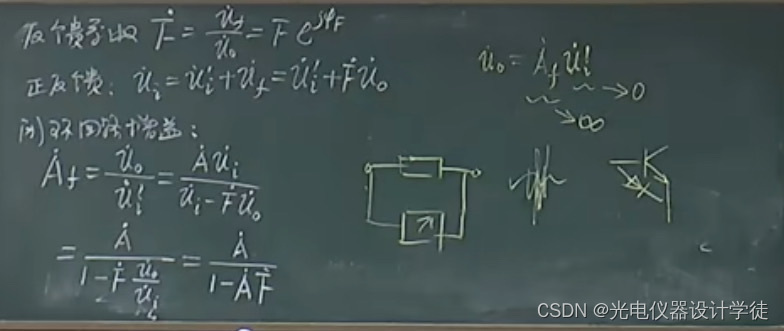 反馈系数 Ḟ = U̇f/U̇o = F e^{jφF}
正反馈: U̇i = U̇i' + U̇f = U̇i' + ḞU̇o
闭环回路增益:
Ȧf = U̇o/U̇i' = ȦU̇i/(U̇i - ḞU̇o)
= Ȧ/(1 - Ḟ U̇o/U̇i) = Ȧ/(1 - ȦḞ)
U̇o = Ȧf U̇i'
→0
→∞
CSDN @光电仪器设计学徒